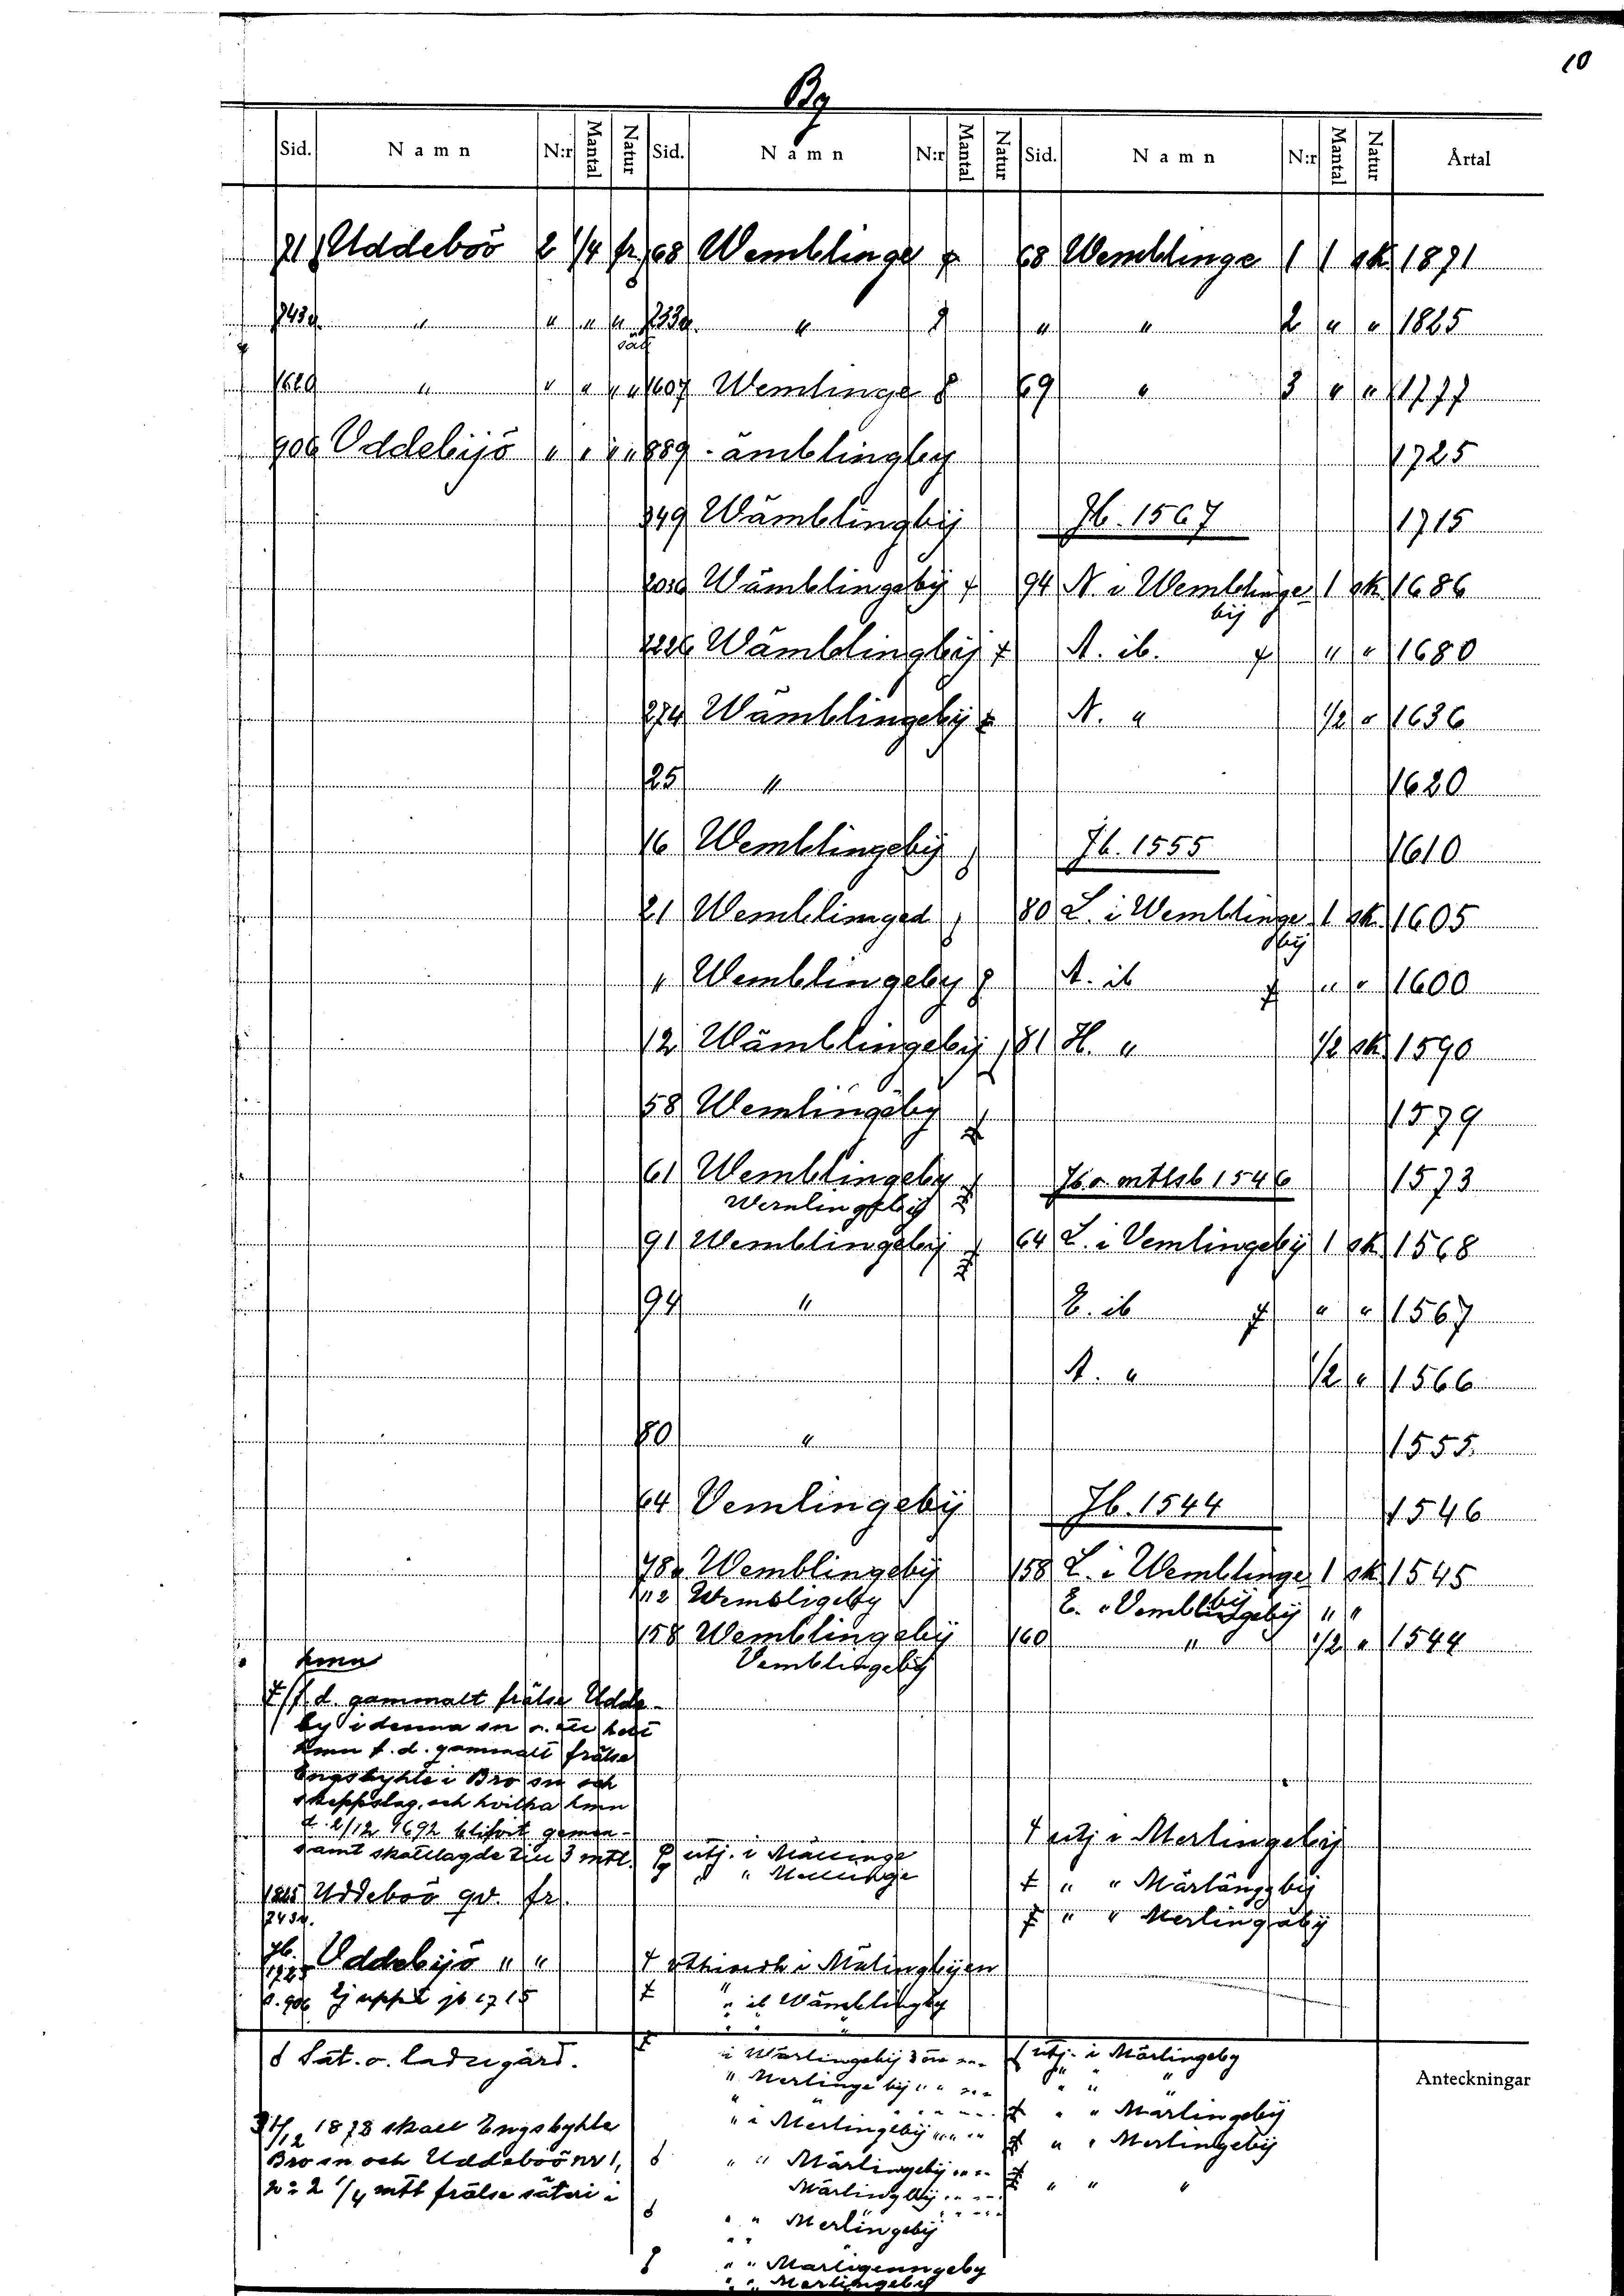 10
By
Sid. Namn N:r Mantal Natur Sid. Namn N:r Mantal Natur Sid. Namn N:r Mantal Natur Årtal
71 Uddeboö 2 1/4 fr 68 Wemblinge 68 Wemblinge 1 1 sk 1871
743a " " " " 733a " " " 2 " " 1825
sät
1629 " " " " " 1607 Wemlinge 69 " 3 " " 1777
906 Uddebijö " " " " 889 -ämblingby 1725
349 Wämblingbij Jb. 1567 1715
2030 Wämblingebij 94 N. i Wemblinge 1 sk 1686
bij
2226 Wämblingbij A. ib. " " 1680
274 Wämblingebij N. " 1/2 " 1636
25 " 1620
16 Wemblingebij Jb. 1555 1610
21 Wemblinged 80 L. i Wemblinge 1 sk 1605
bij
" Wemblingeby A. ib " " 1600
12 Wämblingebij 81 H. " 1/2 sk 1590
58 Wemlingeby 1579
61 Wemblingeby Jb o mtlsb 1546 1573
Wernlingebij
91 Wemblingebij 64 L. i Vemlingebij 1 sk 1568
94 " E. ib " " 1567
A. " 1/2 " 1566
80 " 1555
64 Vemlingebij Jb. 1544 1546
78a Wemblingebij 158 L. i Wemblinge 1 sk 1545
bij
112 Wembligeby E. " Vemblingebij " "
158 Wemblingebij 160 " 1/2 " 1544
hmn Vemblingebij
f. d. gammalt frälse Udde-
by i denna sn o. ett helt
hmn f. d. gammalt frälse
Engsbyhle i Bro sn och
skeppslag, och hvilka hmn
d. 2/12 1692 blifvit gemen-
samt skattlagde till 3 mtl.
utj. i Mällinge
" " Mellinge
utj i Merlingebij
" " Märlänggbij
" " Merlingäbij
1825 Uddeboö qv. fr.
743a.
Jb. 1725 Uddebijö " "
s. 906 Ej uppt jb 1715
othiurh i Mälingbijen
" ib Wämblingby
" " "
Sät. o. ladugård.
31/12 1878 skall Engsbyhle
Bro sn och Uddeboö nr 1,
2 = 2 1/4 mtl frälse säteri i
i Wärlingebij 3 öre
" Merlinge bij " "
" i Merlingebij " "
" " Märlingebij " "
Märlingbij
" " Merlingebij
" " Marligenngeby
" " Merlingeby
utj. i Märlingeby
" " "
" " Marlingebij
" " Merlingebij
" " "
Anteckningar